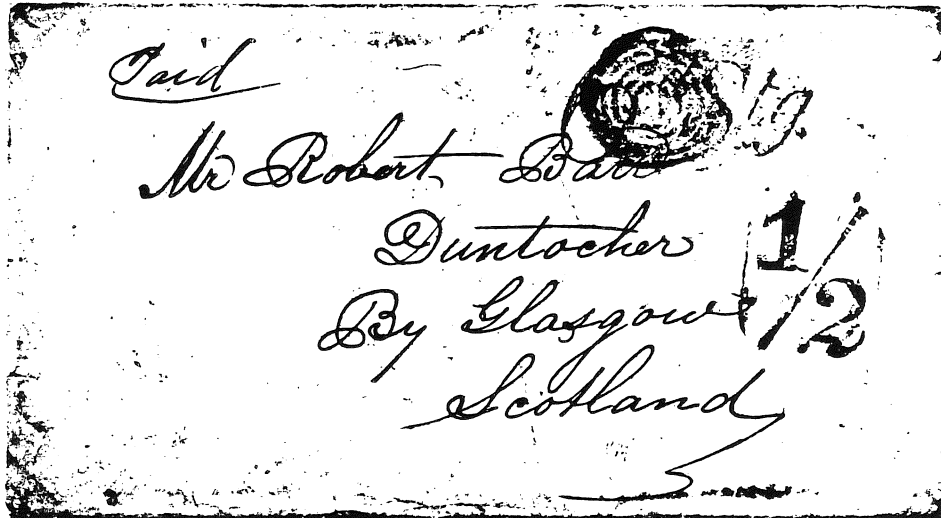 Paid
Mr Robert Barr
Duntocher
By Glasgow
Scotland
1/2